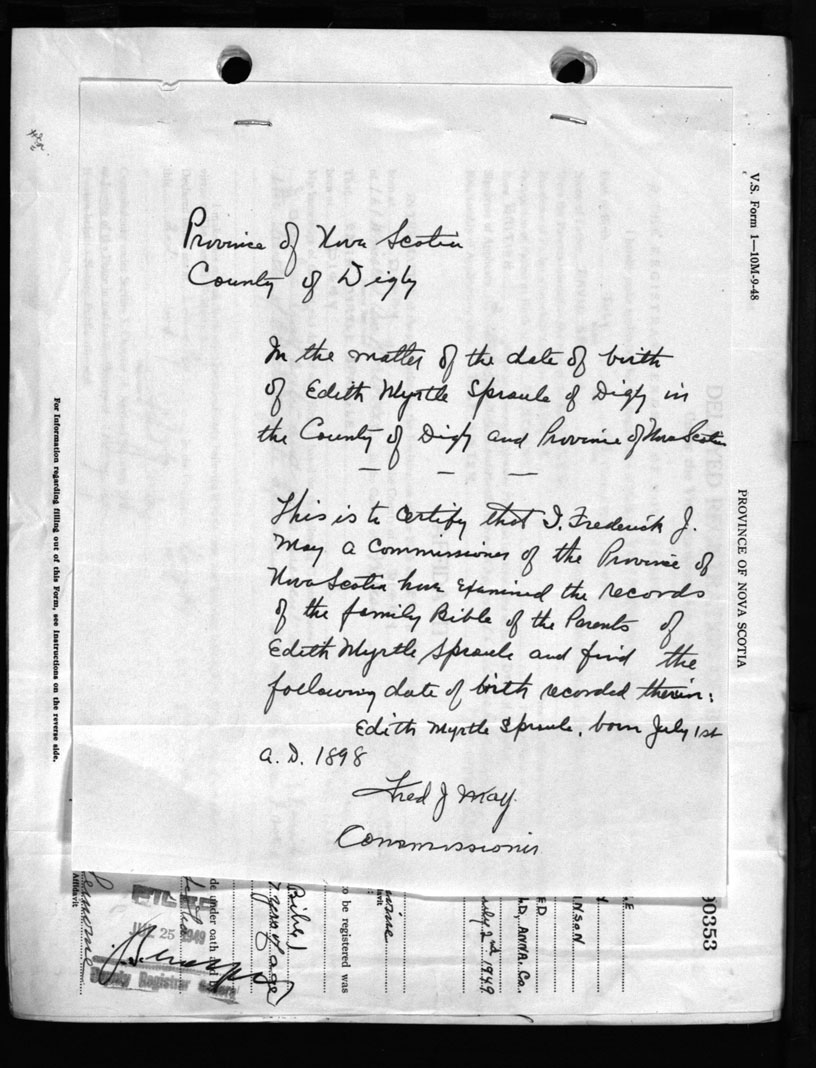 Province of Nova Scotia
County of Digby
In the matter of the date of birth
of Edith Myrtle Sproule of Digby in
the County of Digby and Province of Nova Scotia
This is to certify that I, Frederick J.
May a Commissioner of the Province of
Nova Scotia have examined the records
of the family Bible of the Parents of
Edith Myrtle Sproule and find the
following date of birth recorded therein:
Edith Myrtle Sproule, born July 1st
A.D. 1898
Fred J May
Commissioner
V.S. Form 1—10M-9-48
PROVINCE OF NOVA SCOTIA
For Information regarding filling out of this Form, see Instructions on the reverse side.
90353
INSON
.D, ANNA. Co.
July 2nd 1949
to be registered was
Bible)
7 years of age
de under oath
25 1949
Deputy Registrar General
Affidavit